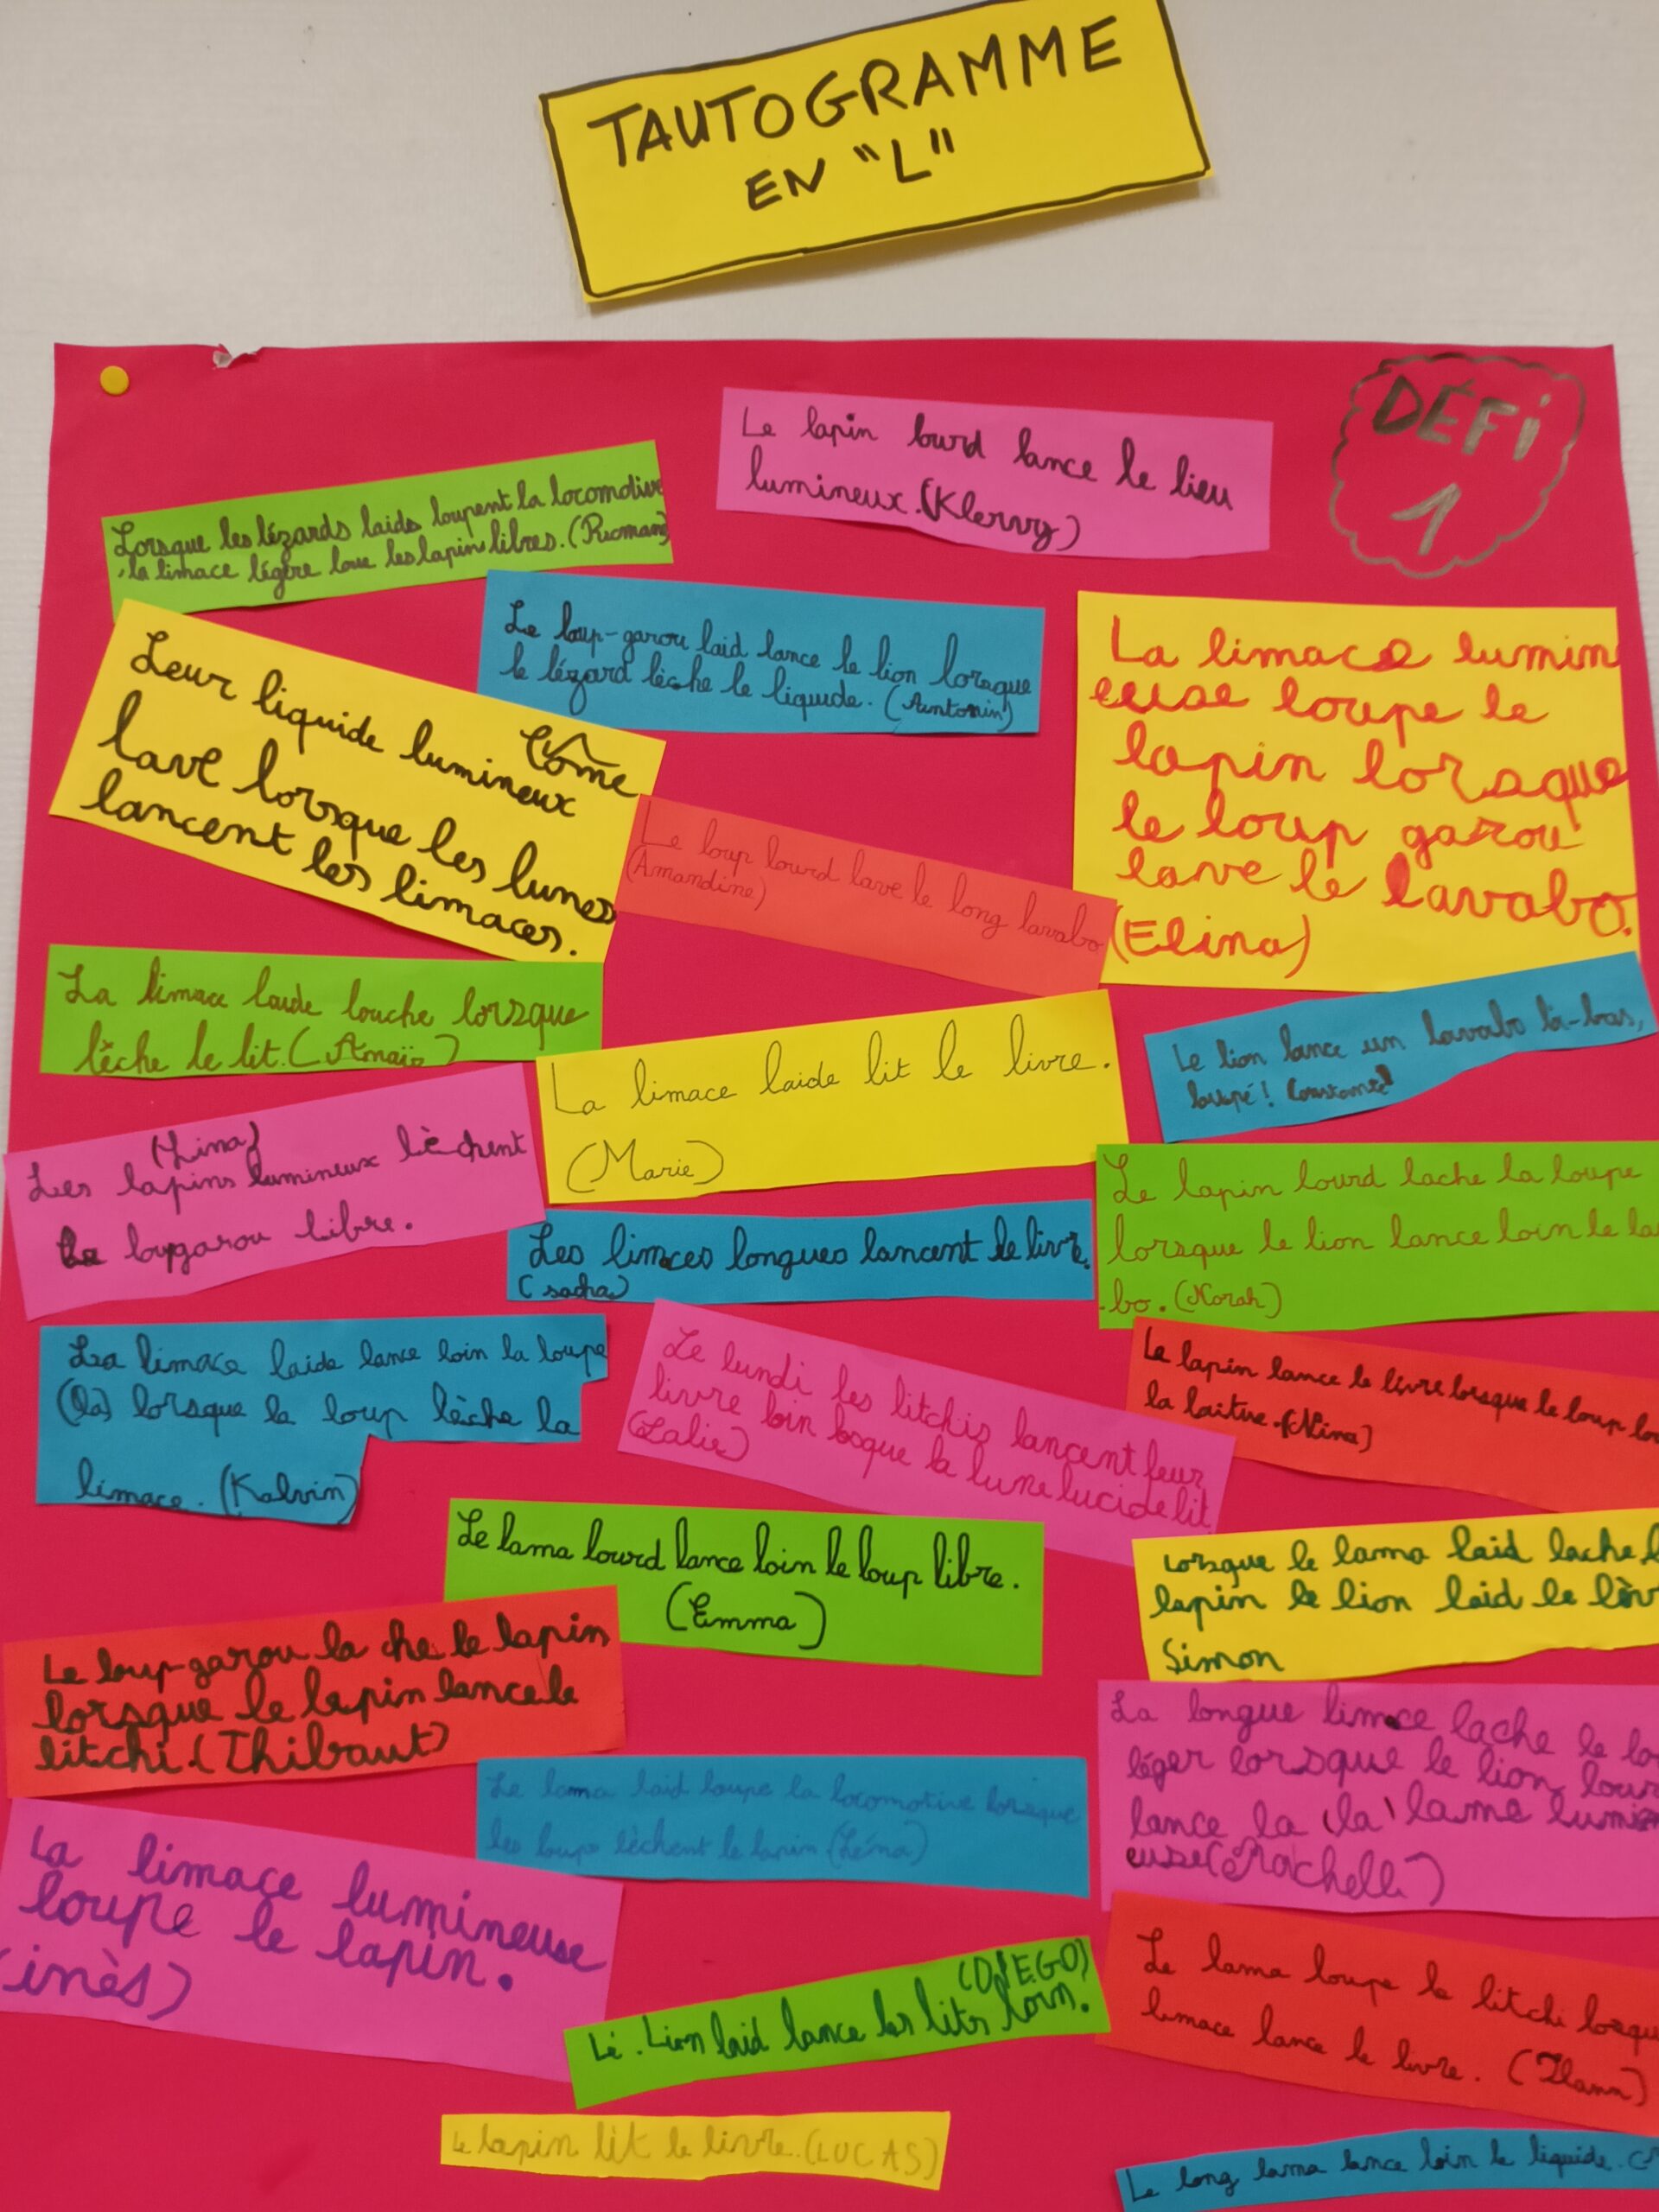 TAUTOGRAMME
EN "L"
DÉFi
1
Le lapin lourd lance le lieu
lumineux. (Klervy)
Lorsque les lézards laids loupent la locomotive
, la limace légère loue les lapins libres. (Ruoman)
Le loup-garou laid lance le lion lorsque
le lézard lèche le liquide. (Antonin)
La limace lumin
euse loupe le
lapin lorsque
le loup garou
lave le lavabo.
(Elina)
Côme
Leur liquide lumineux
lave lorsque les lunes
lancent les limaces.
Le loup lourd lave le long lavabo
(Amandine)
La limace laide louche lorsque
lèche le lit. (Anaïs)
La limace laide lit le livre.
(Marie)
Le lion lance un lavabo là-bas,
loupé !
(Lina)
Les lapins lumineux lèchent
le loupgarou libre.
Les limces longues lancent le livre.
(sacha)
Le lapin lourd lache la loupe
lorsque le lion lance loin le la
bo. (Norah)
La limace laide lance loin la loupe
lorsque le loup lèche la
limace. (Kalvin)
Le lundi les litchis lancent leur
livre loin losque la lune lucide lit
(Lalie)
Le lapin lance le livre lorsque le loup lo
la laitue. (Nina)
Le lama lourd lance loin le loup libre.
(Emma)
Lorsque le lama laid lache l
lapin le lion laid le
Simon
Le loup-garou la che le lapin
lorsque le lapin lance le
litchi. (Thibaut)
Le lama laid loupe la locomotive lorsque
les loups lèchent le lapin (Léna)
La longue limace lache le
léger lorsque le lion lour
lance la la lame lumin
euse (Rachelle)
La limace lumineuse
loupe le lapin.
(inès)
(DIEGO)
Le Lion laid lance les lits loin.
Le lama loupe le litchi lorsqu
limace lance le livre. (Ilann)
Le lapin lit le livre. (LUCAS)
Le long lama lance loin le liquide.